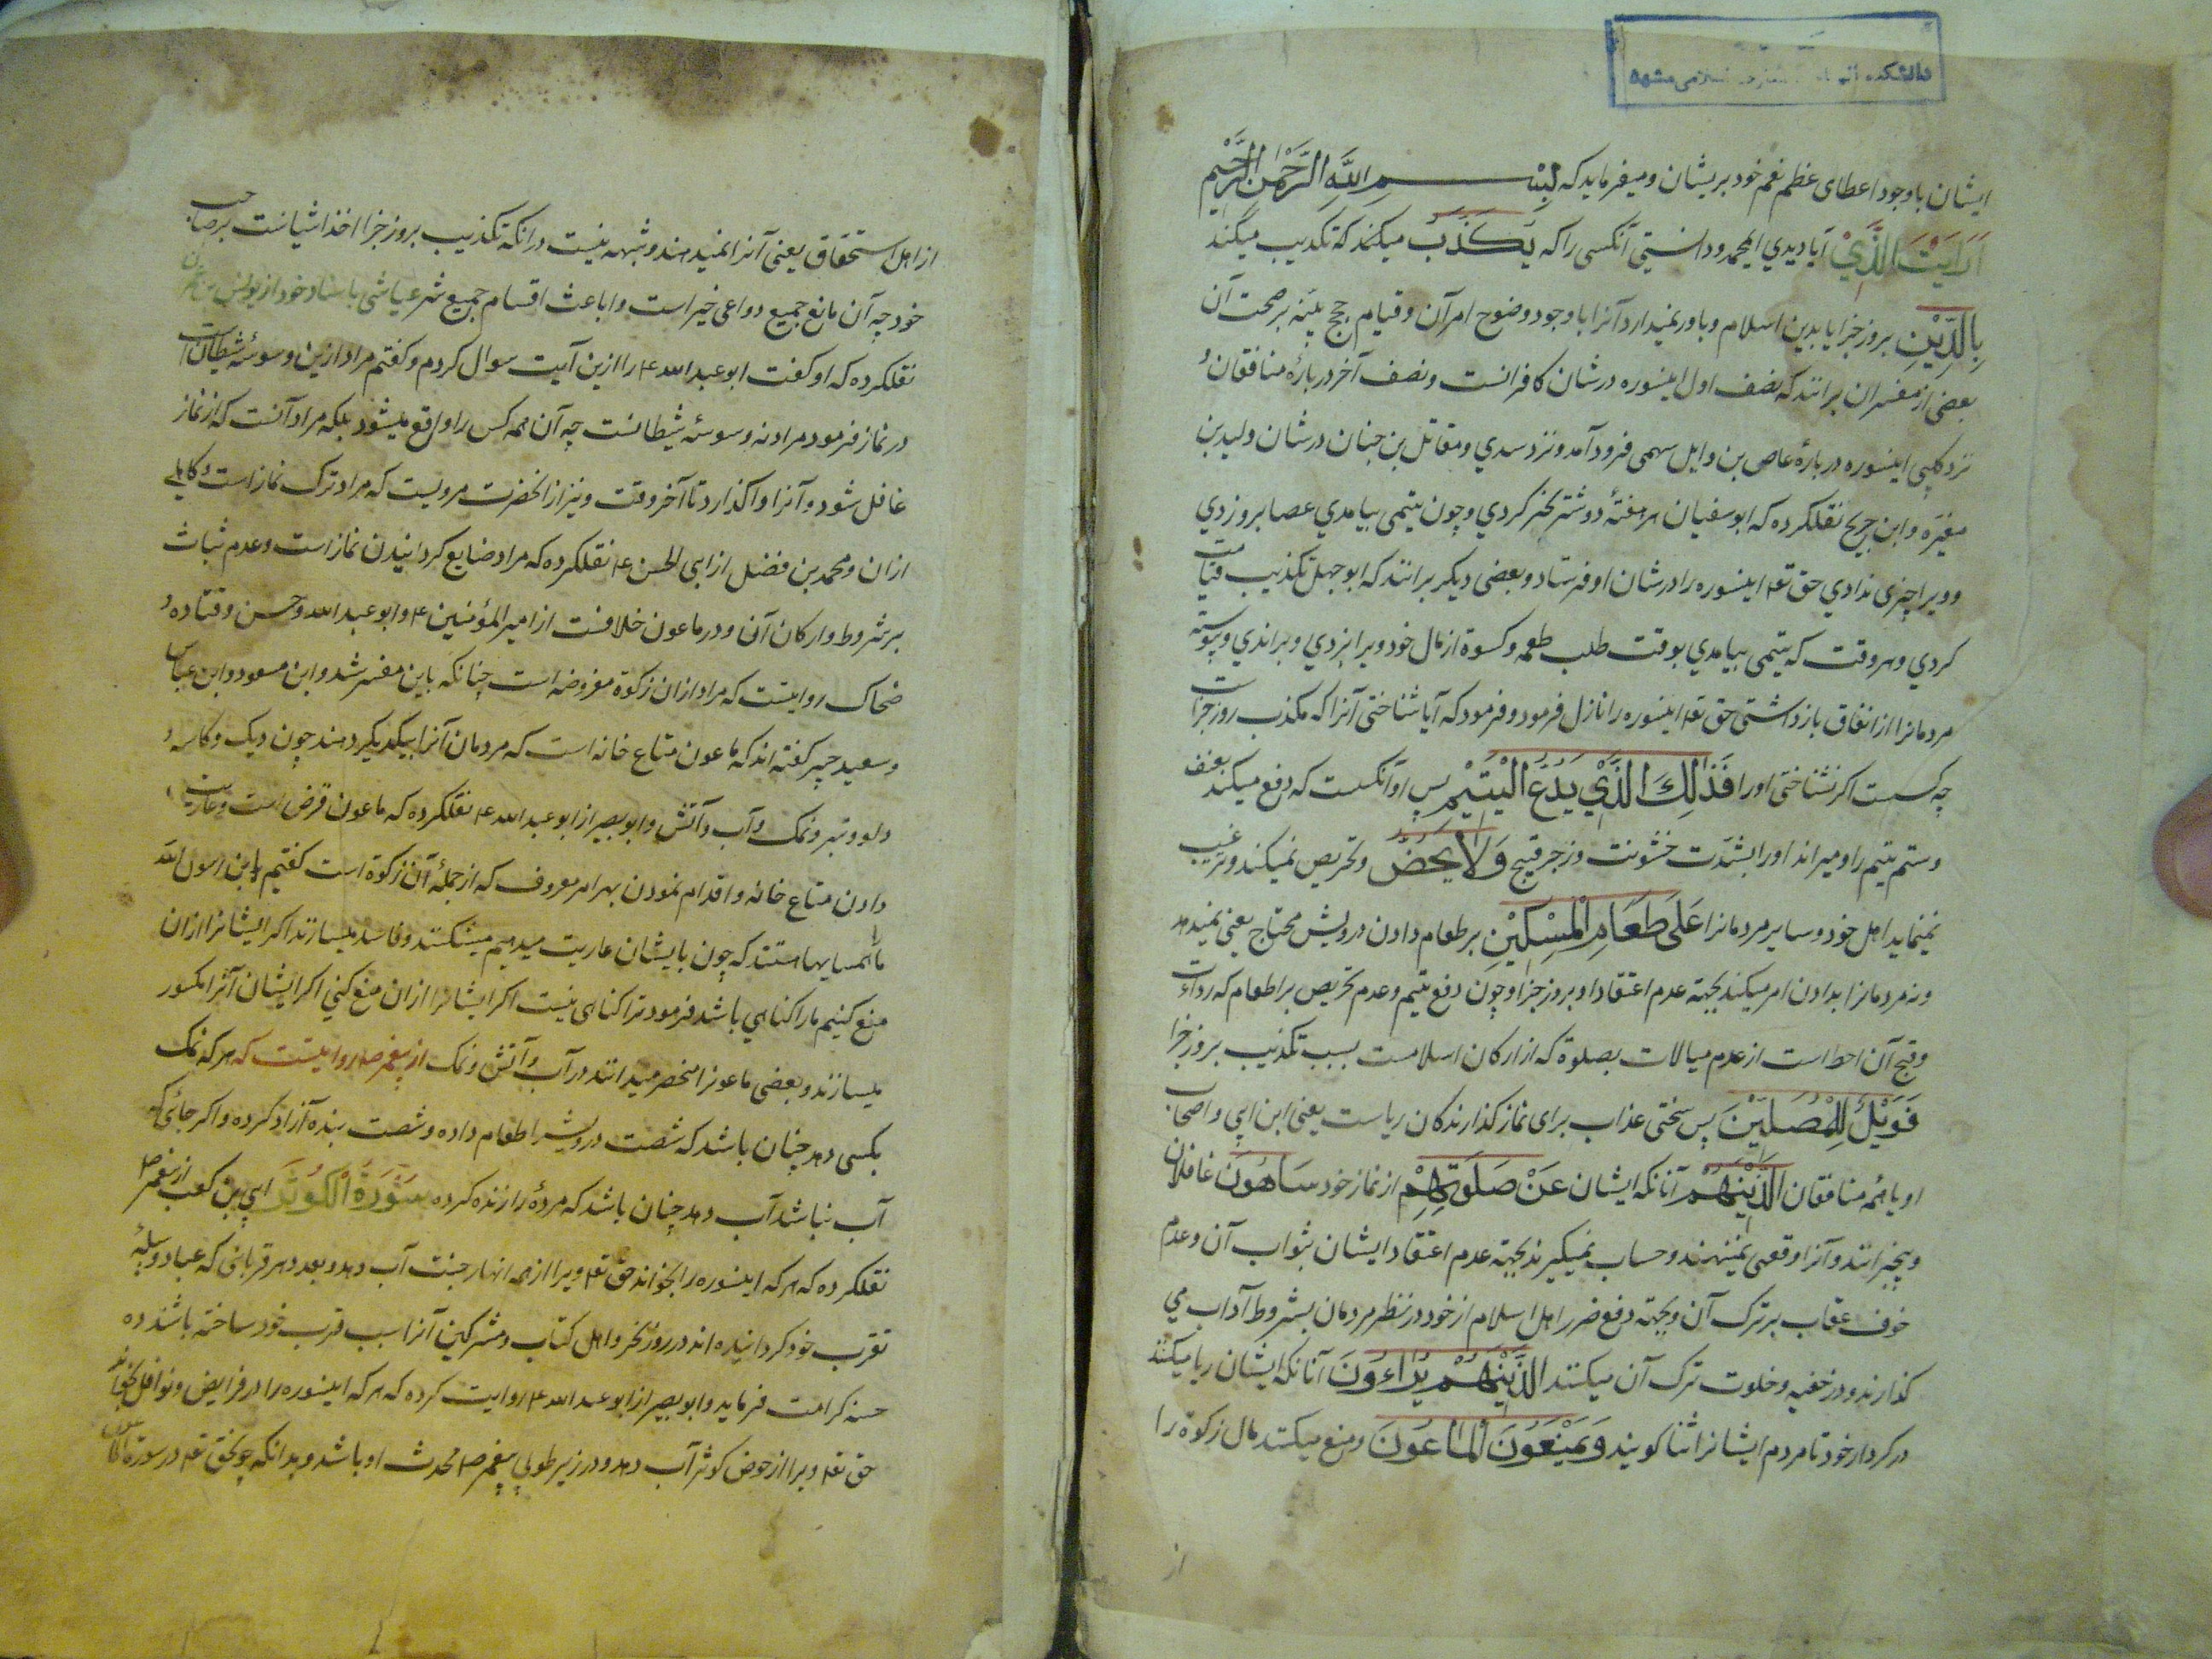 دانشکده الهیات و معارف اسلامی مشهد
ایشان با وجود اعطای عظم نعم خود بریشان و میفرماید که بِسْمِ اللّٰهِ الرَّحْمٰنِ الرَّحِیْمِ
اَرَاَیْتَ الَّذِیْ آیا دیدی ای محمد و دانستی آنکسی را که یُکَذِّبُ میکند که تکذیب میکند
بِالدِّیْنِ بروز جزا یا بدین اسلام و باور نمیدارد آنرا با وجود وضوح امر آن و قیام حجج بینه بر صحت آن
بعضی از مفسران برانند که نصف اول اینسوره در شان کافرانست و نصف آخر درباره منافقان و
نزد کلبی اینسوره درباره عاص بن وایل سهمی فرود آمد و نزد سدی و مقاتل بن حنان در شان ولید بن
مغیره و ابن جریح نقلکرده که ابو سفیان هر هفته دو شتر نحر کردی و چون یتیمی بیامدی عصا برو زدی
و ویرا چیزی ندادی حق تع اینسوره را در شان او فرستاد و بعضی دیکر برانند که ابو جهل تکذیب قیامت
کردی و هر وقت که یتیمی بیامدی بوقت طلب طعمه و کسوة از مال خود ویرا بزدی و براندی و پیوسته
مردمانرا از انفاق بازداشتی حق تع اینسوره را نازل فرمود و فرمود که آیا شناختی آنرا که مکذب روز جزاست
چه کسست اکر نشناختی اورا فَذٰلِکَ الَّذِیْ یَدُعُّ الْیَتِیْمَ پس او آنکسست که دفع میکند بعنف
و ستم یتیم را و میراند اورا بشدّت خشونت و زجر قبیح وَلَا یَحُضُّ و تحریص نمیکند و ترغیب
نمینماید اهل خود و سایر مردمانرا عَلٰی طَعَامِ الْمِسْکِیْنِ بر طعام دادن درویش محتاج یعنی نمیدهد
و نه مردمانرا بدادن امر میکند بجهته عدم اعتقاد او بروز جزا و چون دفع یتیم و عدم تحریص بر اطعام که رداءت
و قبح آن احط است از عدم مبالات بصلوة که از ارکان اسلامست بسبب تکذیب بروز جزا
فَوَیْلٌ لِلْمُصَلِّیْنَ پس سختی عذاب برای نماز کذارندکان ریاست یعنی ابن ابی و اصحاب
او یا همه منافقان الَّذِیْنَ هُمْ آنانکه ایشان عَنْ صَلٰوتِهِمْ از نماز خود سَاهُوْنَ غافلان
و بیخبرانند و آنرا وقعی نمینهند و حساب نمیکیرند بجهته عدم اعتقاد ایشان بثواب آن و عدم
خوف عقاب بر ترک آن و بجهته دفع ضرر اهل اسلام از خود در نظر مردمان بشروط آداب می
کذارند و در خفیه و خلوت ترک آن میکنند الَّذِیْنَ هُمْ یُرَاءُوْنَ آنانکه ایشان ریا میکنند
در کردار خود تا مردم ایشانرا ثنا کویند وَیَمْنَعُوْنَ الْمَاعُوْنَ و منع میکنند مال زکوة را
از
از اهل استحقاق یعنی آنرا نمیدهند و شبهه نیست در انکه تکذیب بروز جزا اخذ اشیانست بر صاحب
خود چه آن مانع جمیع دواعی خیر است و اباعث اقسام جمیع شر عیاشی باسناد خود از یونس بن عمار
نقلکرده که او کفت ابو عبد الله ع را ازین آیت سوال کردم و کفتم مراد ازین وسوسه شیطان است
در نماز فرمود مراد نه وسوسه شیطانست چه آن همه کس را واقع میشود بلکه مراد آنست که از نماز
غافل شود و آنرا واکذارد تا آخر وقت و نیز از انحضرت مرویست که مراد ترک نماز است و کاهلی
ازان و محمد بن فضل از ابی الحسن ع نقلکرده که مراد ضایع کردانیدن نماز است و عدم ثبات
بر شروط و ارکان آن و در ماعون خلافست از امیر المؤمنین ع و ابو عبد الله و حسن و قتاده و
ضحاک روایتست که مراد ازان زکوة مفروضه است چنانکه باین مفسر شد و ابن مسعود و ابن عباس
و سعید جبیر کفته اند که ماعون متاع خانه است که مردمان آنرا بیکدیکر دهند چون دیک و کاسه و
دلو و تبر و نمک و آب و آتش و ابو بصیر از ابو عبد الله ع نقلکرده که ماعون قرض است و عاریت
دادن متاع خانه و اقدام نمودن بهر امر معروف که از جمله آن زکوة است کفتیم یا بن رسول الله
ما را همسایها هستند که چون بایشان عاریت میدهیم میشکنند و فاسد میسازند اکر ایشانرا ازان
منع کنیم ما را کناهی باشد فرمود ترا کناهی نیست اکر ایشانرا ازان منع کنی اکر ایشان آنرا مکسور
میسازند و بعضی ماعونرا منحصر میدانند در آب و آتش و نمک از پیغمبر ص روایتست که هر که نمک
بکسی دهد چنان باشد که شصت درویشرا طعام داده و شصت بنده آزاد کرده و اکر جائی که
آب نباشد آب دهد چنان باشد که مرده را زنده کرده سُوْرَةُ الْکَوْثَرِ ابی بن کعب از پیغمبر ص
نقلکرده که هر که اینسوره را بخواند حق تع ویرا از همه انهار جنت آب دهد و بعدد هر قربانی که عباد وسیله
تقرب خود کردانیده اند در روز نحر و اهل کتاب و مشرکین آنرا سبب قرب خود ساخته باشند ده
حسنه کرامت فرماید و ابو بصیر از ابو عبد الله ع روایت کرده که هر که اینسوره را در فرایض و نوافل بخواند
حق تع ویرا از حوض کوثر آب دهد و در زیر طوبی پیغمبر ص محدث او باشد و بدانکه چون حق تع در سوره